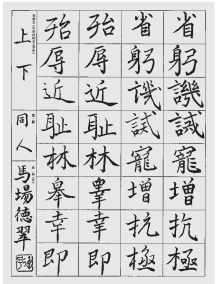 省躬譏誡寵増抗極
省躬譏誡寵増抗極
殆辱近耻林皋幸即
殆辱近耻林皋幸即
上下
同人
馬場徳翠